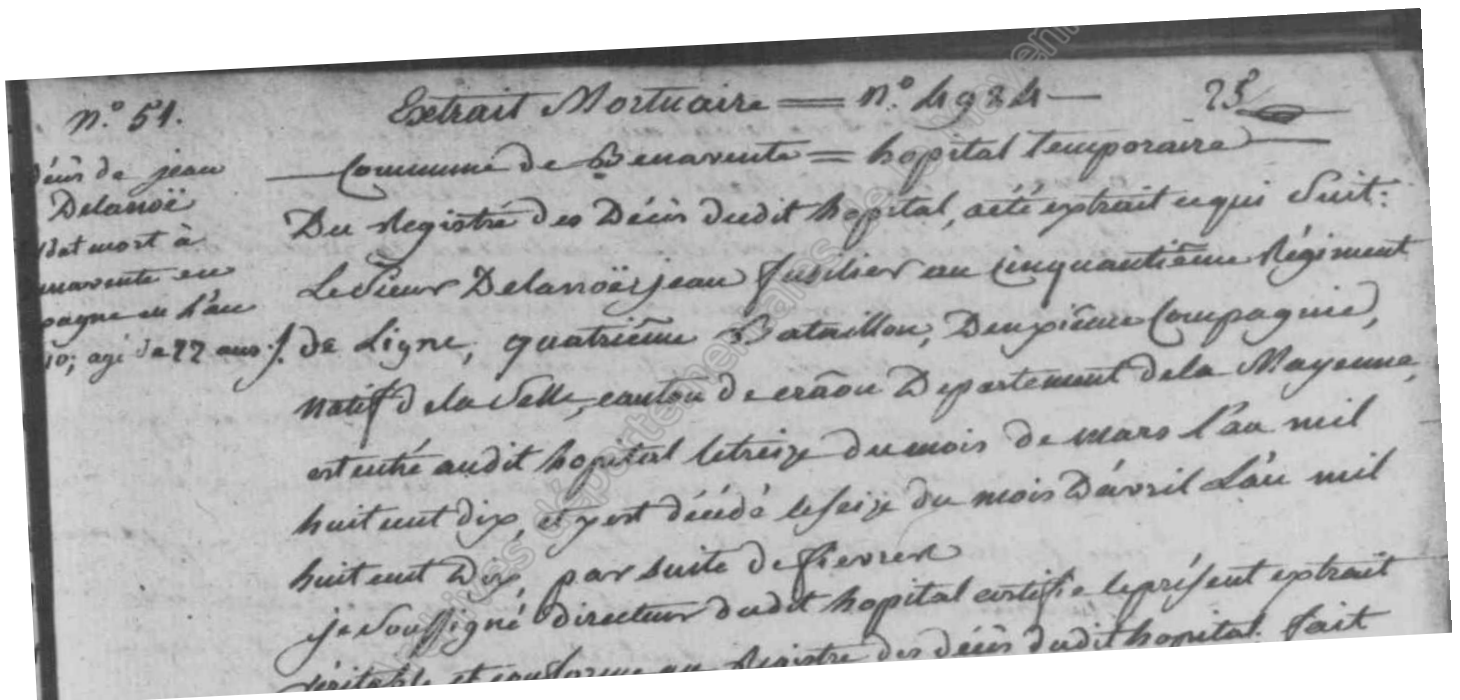 n.° 51.
Extrait Mortuaire = n.° 4984 — 25
décès de jean
Delanoë
ldat mort à
enavente en
pagne en l'an
10; agé de 22 ans ·/.
— Commune de Benavente = hopital Temporaire —
Du Registre des Décès dudit hopital, a été extrait ce qui Suit:
Le Sieur Delanoë, jean fusilier au cinquantième Régiment
de Ligne, quatrième Bataillon, Deuxième Compagnie,
natif de la Selle, canton de craôn Département de la Mayenne,
est entré audit hopital le treize du mois de mars l'an mil
huit cent dix, et y est décédé le seize du mois D'avril L'an mil
huit cent Dix, par suite de fievres
je Soussigné directeur dudit hopital certifie le présent extrait
véritable et conforme au Registre des décès dudit hopital. fait
archives départementales de la Mayenne